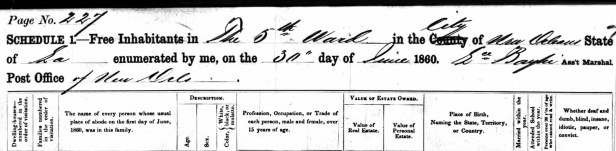 Page No. 227
SCHEDULE 1.—Free Inhabitants in The 5th Ward in the County City of New Orleans State
of La enumerated by me, on the 30th day of June 1860. Ass't Marshal.
Post Office of New Orls
DESCRIPTION.
VALUE OF ESTATE OWNED.
Dwelling-houses—numbered in the order of visitation.
Families numbered in the order of visitation.
The name of every person whose usual place of abode on the first day of June, 1860, was in this family.
Age.
Sex.
Color, {White, black, or mulatto.
Profession, Occupation, or Trade of each person, male and female, over 15 years of age.
Value of Real Estate.
Value of Personal Estate.
Place of Birth, Naming the State, Territory, or Country.
Married within the year.
Attended School within the year.
Whether deaf and dumb, blind, insane, idiotic, pauper, or convict.